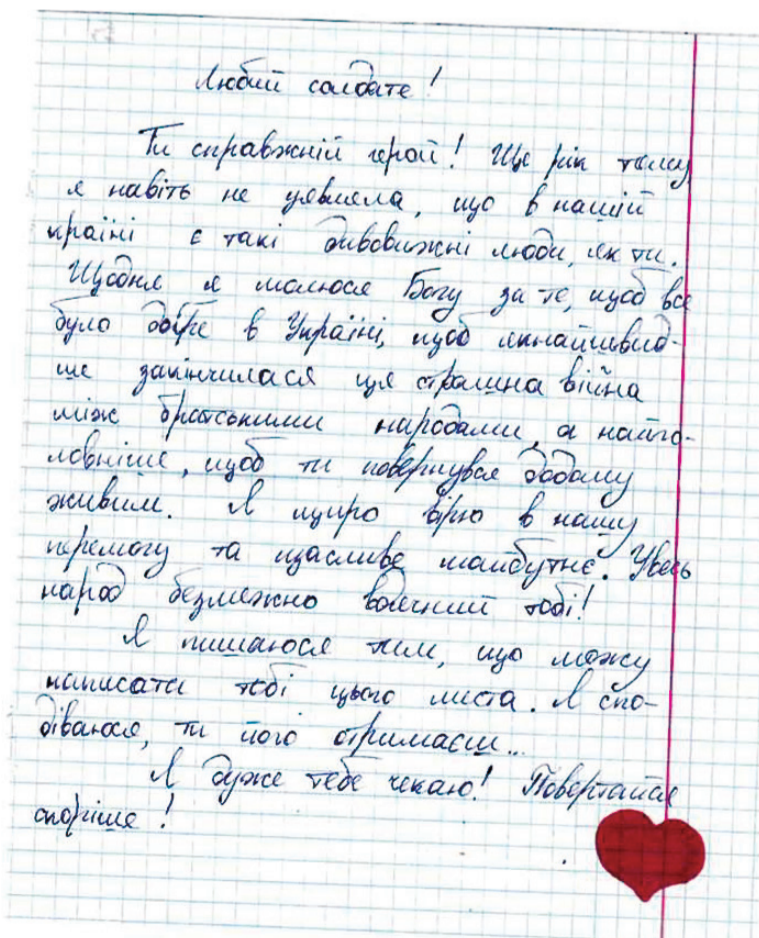 Любий солдате!
Ти справжній герой! Ще рік тому
я навіть не уявляла, що в нашій
країні є такі дивовижні люди, як ти.
Щодня я молюся Богу за те, щоб все
було добре в Україні, щоб якнайшвид-
ше закінчилася ця страшна війна
між братськими народами, а найго-
ловніше, щоб ти повернувся додому
живим. Я щиро вірю в нашу
перемогу та щасливе майбутнє. Увесь
народ безмежно вдячний тобі!
Я пишаюся тим, що можу
написати тобі цього листа. Я спо-
діваюся, ти його отримаєш...
Я дуже тебе чекаю! Повертайся
скоріше!